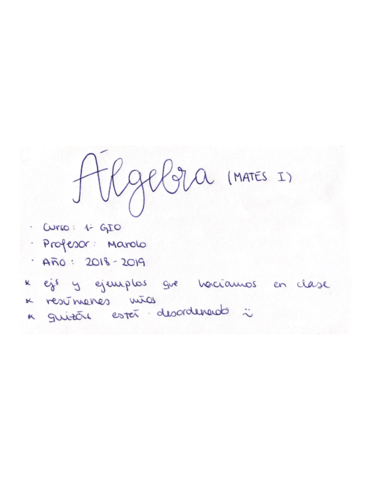 Álgebra (MATES I)
· Curso: 1º GIO
· Profesor: Marolo
· Año: 2018-2019
* ejs y ejemplos que hacíamos en clase
* resúmenes míos
* quizás esté desordenado :)